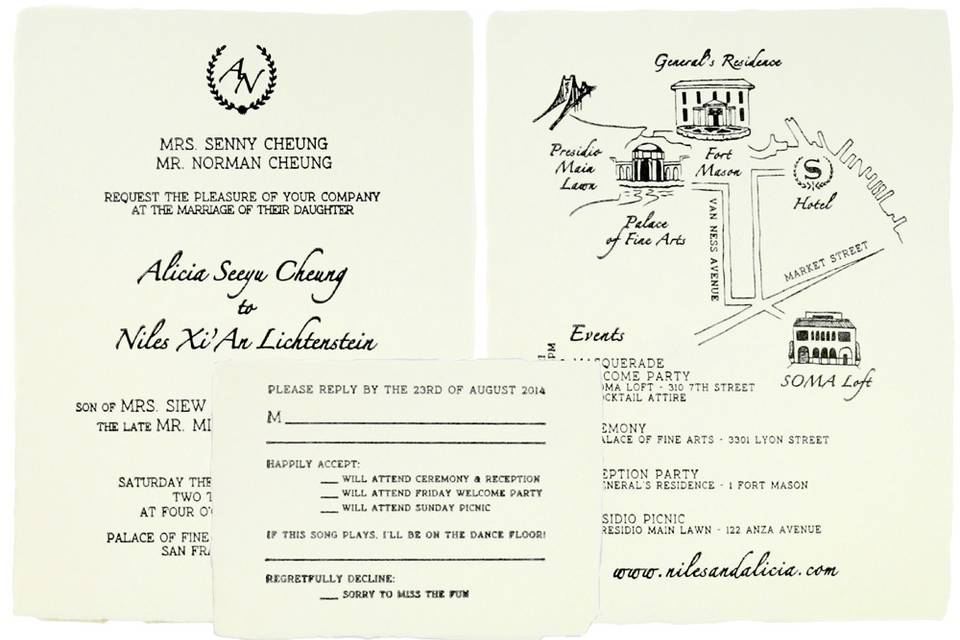 AN
MRS. SENNY CHEUNG
MR. NORMAN CHEUNG
REQUEST THE PLEASURE OF YOUR COMPANY
AT THE MARRIAGE OF THEIR DAUGHTER
Alicia Seeyu Cheung
to
Niles Xi'An Lichtenstein
SON OF MRS. SIEW
THE LATE MR.
SATURDAY
TWO
AT FOUR
PALACE OF FINE
SAN
General's Residence
Presidio
Main
Lawn
Fort
Mason
S
Hotel
Palace
of Fine Arts
VAN NESS AVENUE
MARKET STREET
SOMA Loft
Events
PM
MASQUERADE
COME PARTY
OMA LOFT - 310 7TH STREET
OCKTAIL ATTIRE
EMONY
ALACE OF FINE ARTS - 3301 LYON STREET
EPTION PARTY
ENERAL'S RESIDENCE - 1 FORT MASON
SIDIO PICNIC
RESIDIO MAIN LAWN - 122 ANZA AVENUE
www.nilesandalicia.com
PLEASE REPLY BY THE 23RD OF AUGUST 2014
M
HAPPILY ACCEPT:
WILL ATTEND CEREMONY & RECEPTION
WILL ATTEND FRIDAY WELCOME PARTY
WILL ATTEND SUNDAY PICNIC
IF THIS SONG PLAYS, I'LL BE ON THE DANCE FLOOR!
REGRETFULLY DECLINE:
SORRY TO MISS THE FUN